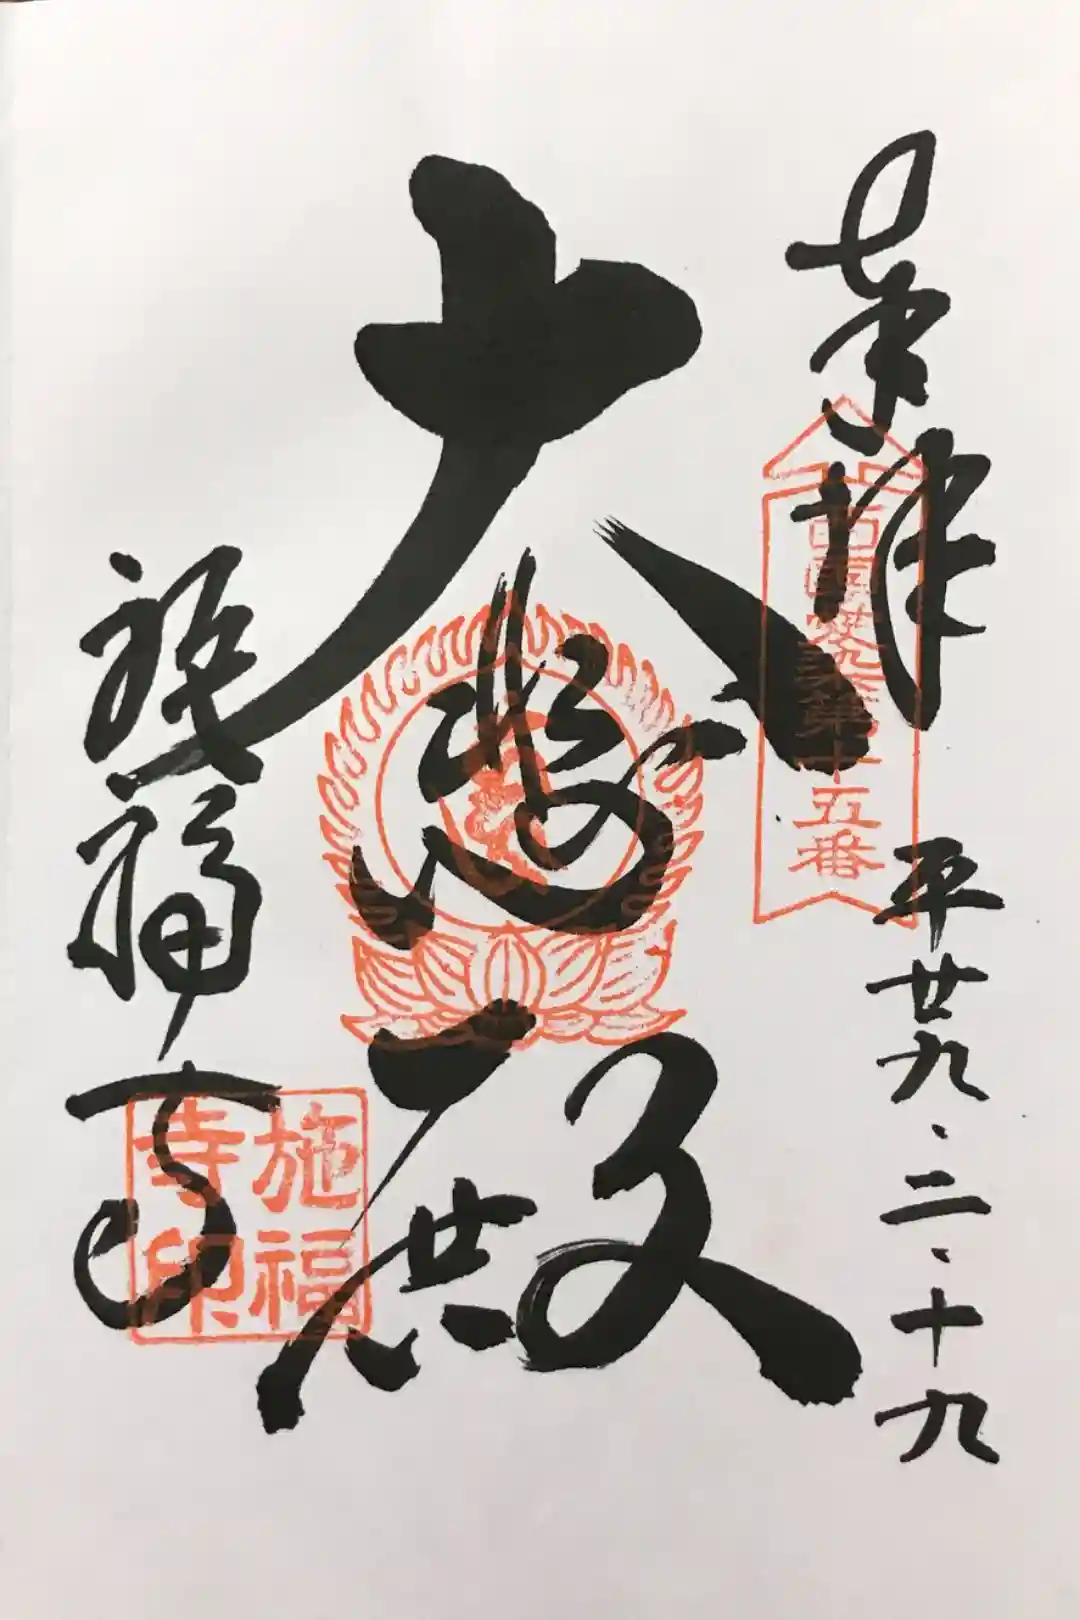 奉拝
西國愛染第十五番
平廿九・二・十九
大悲殿
施福寺
施福寺印